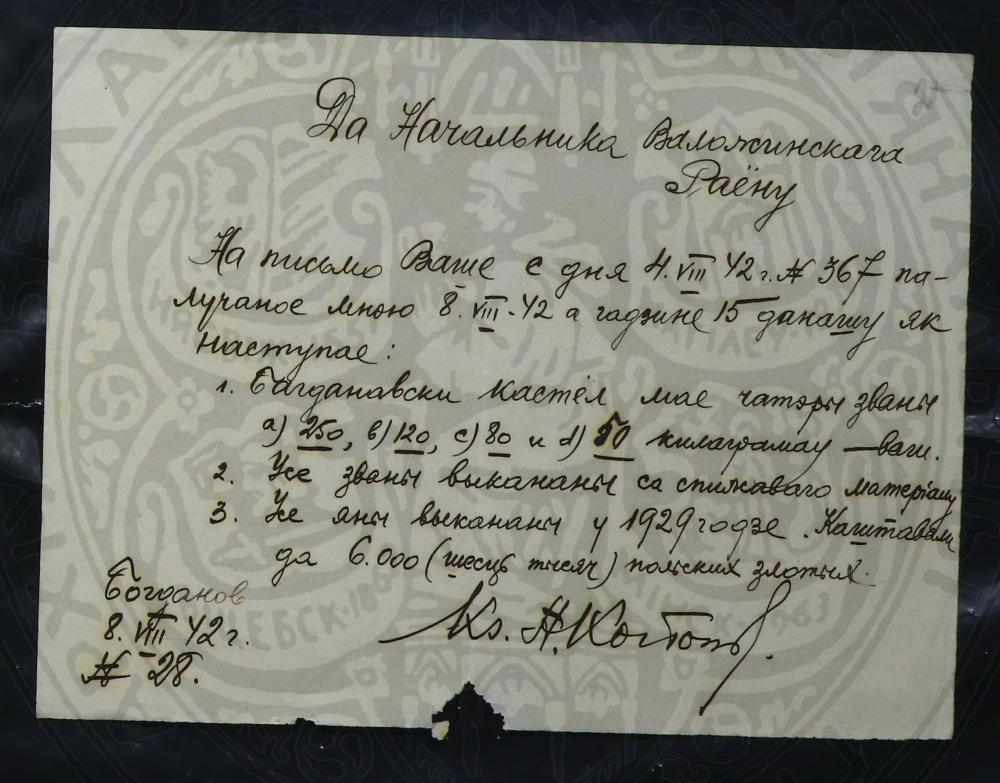 Да Начальника Валожинскага
Раёну
На письмо Ваше с дня 4.VIII 42 г. № 367 па-
лучаное мною 8.VIII-42 а гадзине 15 данашу як
наступае:
1. Багданавски кастёл мае чатэры званы
а) 250, в) 120, с) 80 и d) 50 килаграмау — ваги.
2. Усе званы выкананы са спижаваго матерiалу
3. Усе яны выкананы у 1929 годзе. Каштавали
да 6.000 (шесць тысяч) польских злотых.
Богданов
8.VIII 42 г.
№ 28.
Кs. А.